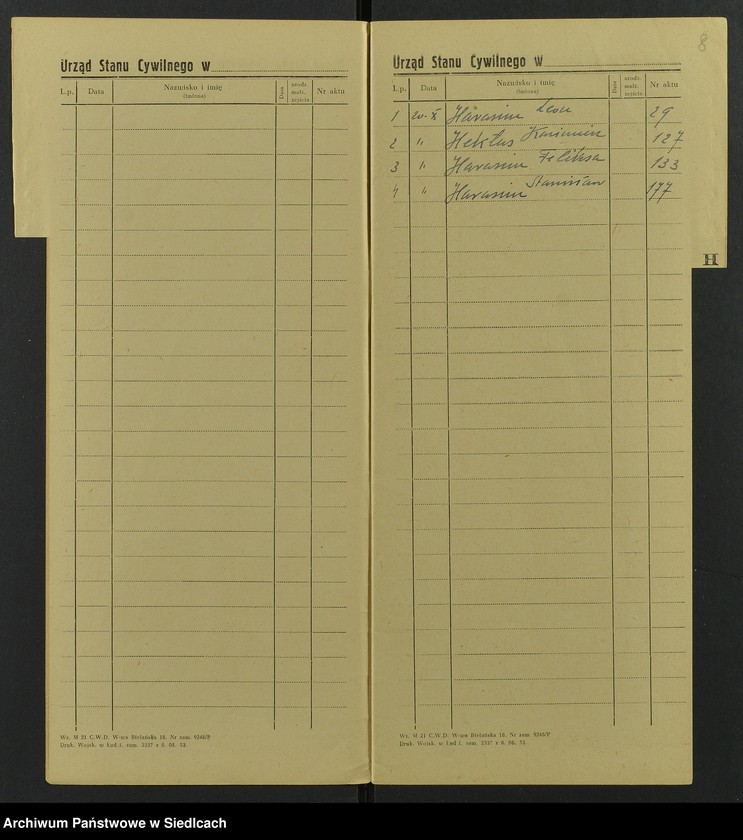 8
Urząd Stanu Cywilnego w
L.p. Data Nazwisko i imię (imiona) Data urodz. małż. zejścia Nr aktu
Urząd Stanu Cywilnego w
L.p. Data Nazwisko i imię (imiona) Data urodz. małż. zejścia Nr aktu
1 20-X Harasim Leon 29
2 " Hektus Kazimierz 127
3 " Harasim Feliksa 133
4 " Harasim Stanisław 177
H
Wz. M 21 C.W.D. W-wa Bielańska 18. Nr zam. 9248/P
Druk. Wojsk. w Łodzi. zam. 3337 z 6. 08. 53.
Wz. M 21 C.W.D. W-wa Bielańska 18. Nr zam. 9248/P
Druk. Wojsk. w Łodzi. zam. 3337 z 6. 08. 53.
Archiwum Państwowe w Siedlcach